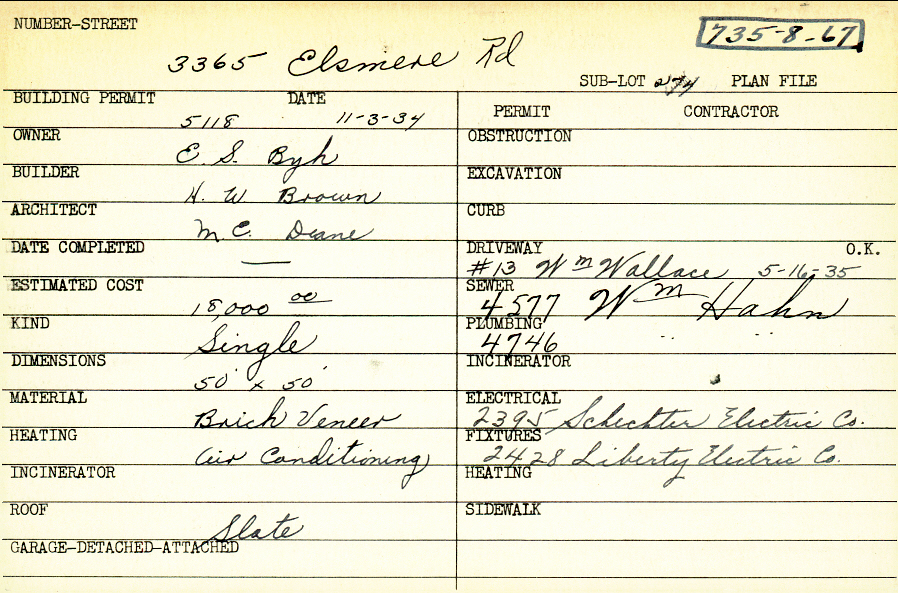 NUMBER-STREET
735-8-67
3365 Elsmere Rd
SUB-LOT 274 PLAN FILE
BUILDING PERMIT DATE
5118 11-3-34
OWNER
E. S. Byh
BUILDER
H. W Brown
ARCHITECT
M. C. Deane
DATE COMPLETED
—
ESTIMATED COST
18,000 00
KIND
Single
DIMENSIONS
50' x 50'
MATERIAL
Brick Veneer
HEATING
Air Conditioning
INCINERATOR
ROOF
Slate
GARAGE-DETACHED-ATTACHED
PERMIT CONTRACTOR
OBSTRUCTION
EXCAVATION
CURB
DRIVEWAY O.K.
#13 Wm Wallace 5-16-35
SEWER
4577 Wm Hahn
PLUMBING
4746 " "
INCINERATOR
ELECTRICAL
2395 Schechter Electric Co.
FIXTURES
2428 Liberty Electric Co.
HEATING
SIDEWALK